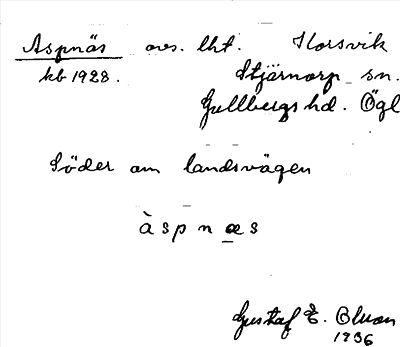 Aspnäs avs. lht. Korsvik
kb 1928. Stjärnorp sn.
Gullbergs hd. Ögl
Söder om landsvägen
àspnæs
Gustaf E.
1936